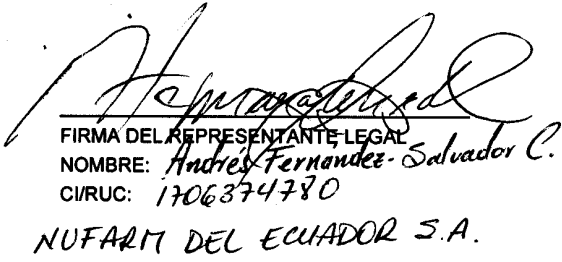 FIRMA DEL REPRESENTANTE LEGAL
NOMBRE: Andrés Fernandez-Salvador C.
CI/RUC: 1706374780
NUFARM DEL ECUADOR S.A.